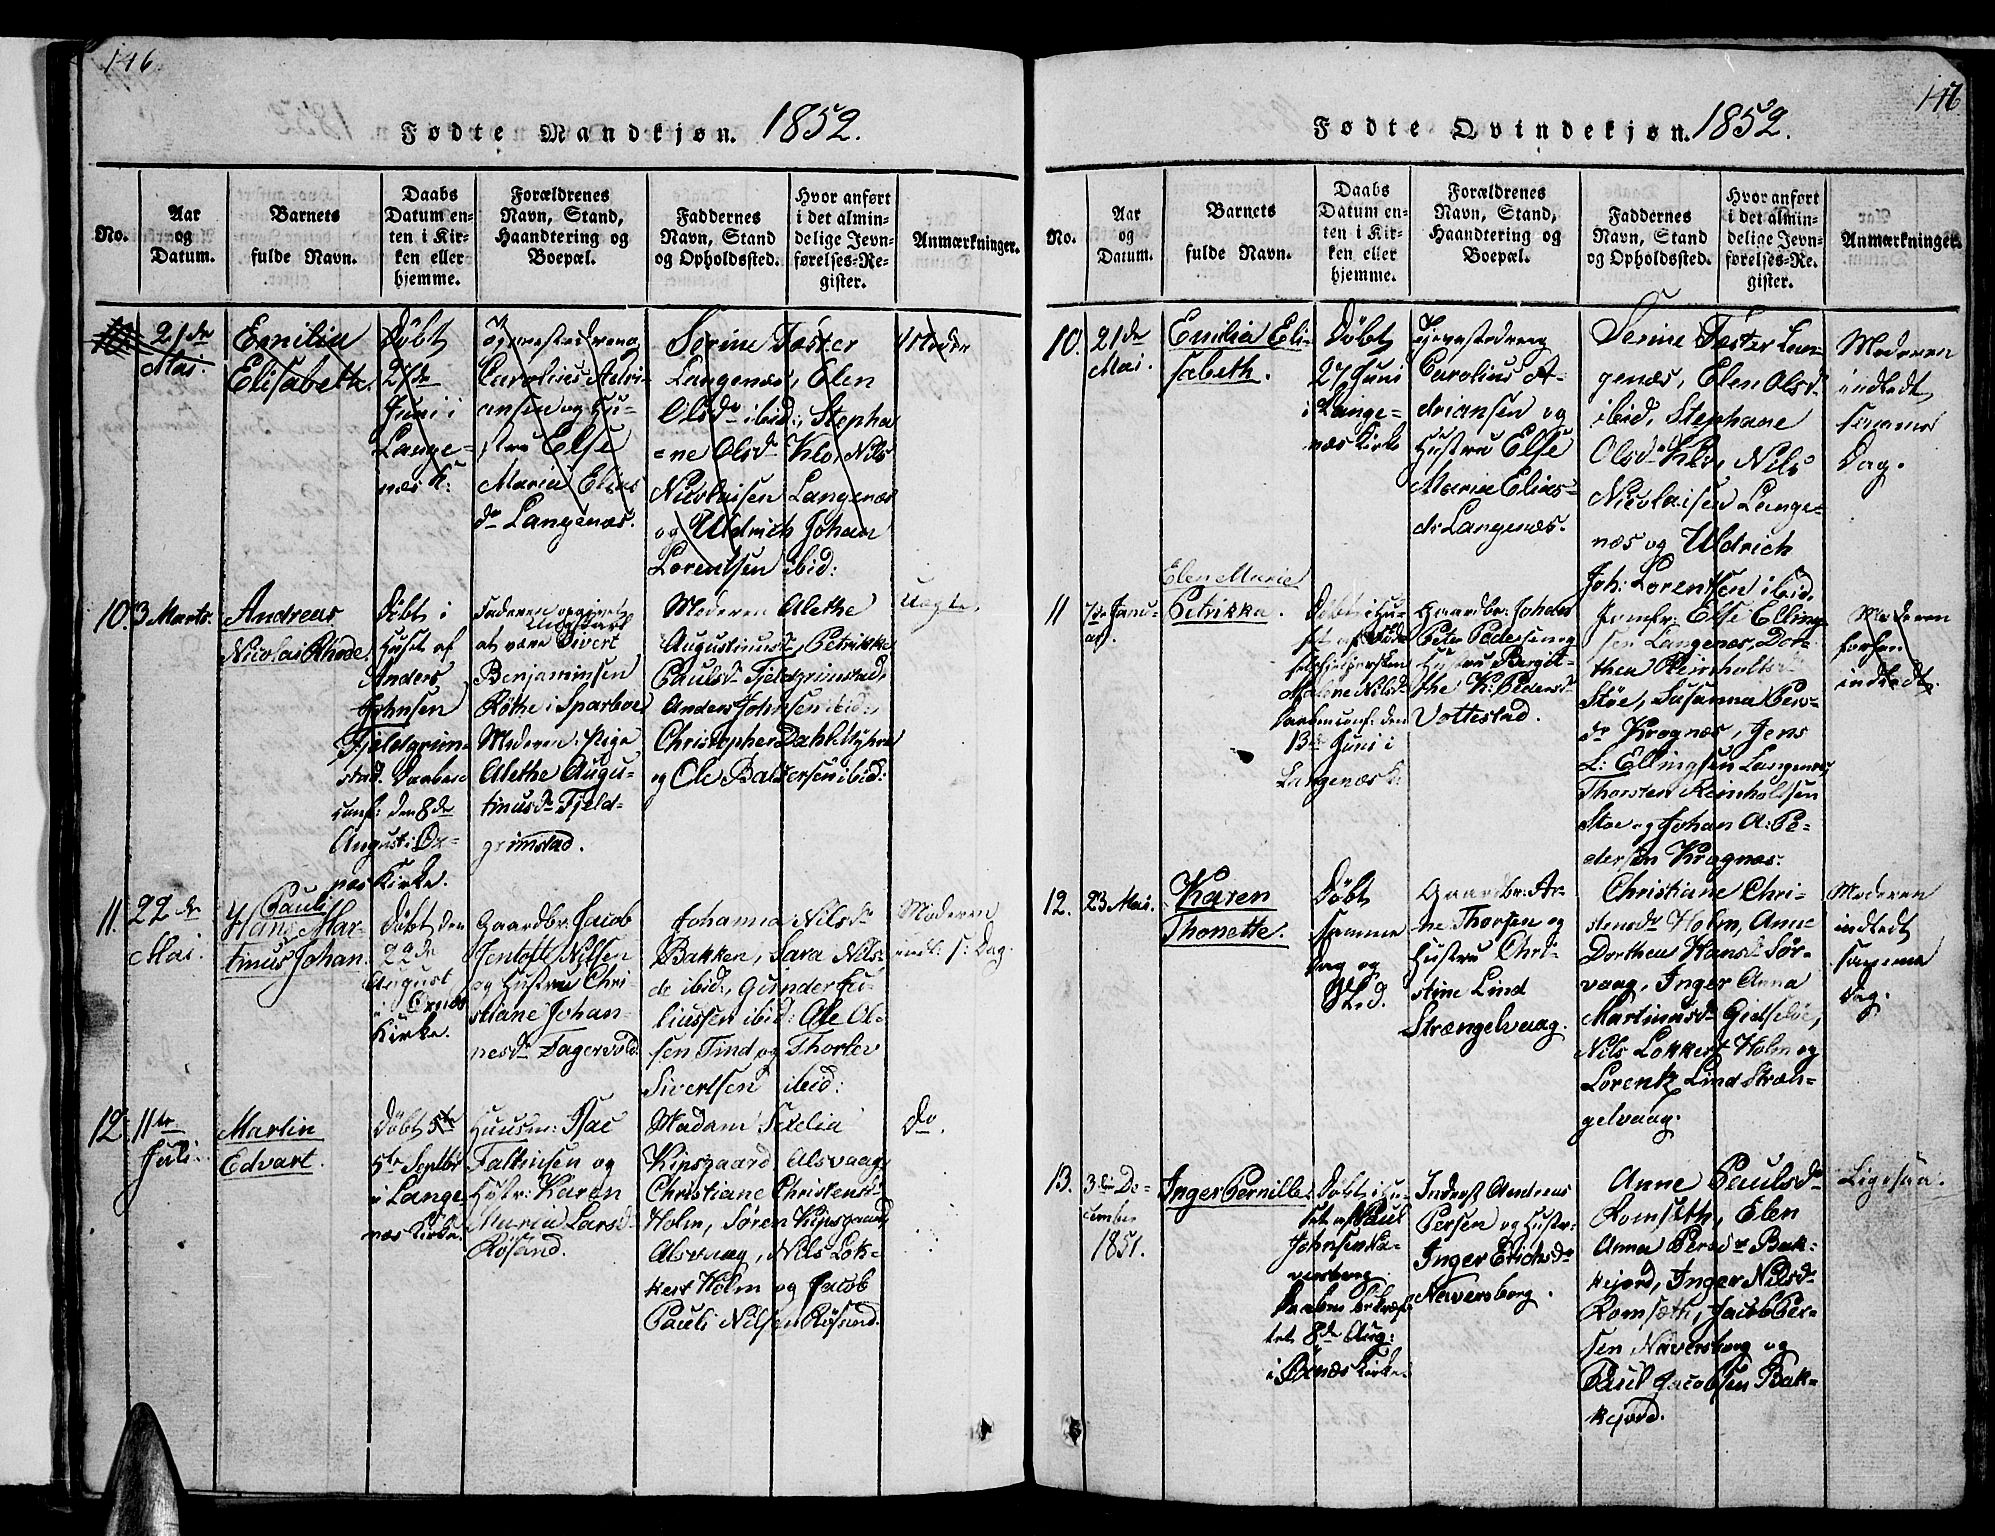 146
Fødte Mandkjøn. 1852.
No.
Aar
og
Datum.
Barnets
fulde Navn.
Daabs
Datum en-
ten i Kir-
ken eller
hjemme.
Forældrenes
Navn, Stand,
Haandtering og
Boepæl.
Faddernes
Navn, Stand
og Opholdssted.
Hvor anført
i det almin-
delige Jevn-
førelses-Re-
gister.
Anmærkninger.
10.
21de
Mai.
Emilia
Elisabeth
Døbt
27de
Juni i
Lange-
næs K:
Carolius Adri-
ansen og Hu-
stru Else
Maria Elias
dr Langenæs.
Sørine Tøsker
Langenæs, Elen
Olsdr ibid:, Stepha
=ne Olsdr Klo, Nils
Nicolaisen Langenæs
og Uldrich Johan
Lorentsen ibid:
10.
3 Marts.
Andreas
Nicolai Rhode.
Døbt i
Huset af
Anders
Johnsen
Fjeldgrim-
stad. Daaben
conf: den 8de
August i Øx-
næs Kirke.
Faderen opgivet
at være Sivert
Benjaminsen
Røthe i Sparboe
Moderen: Pige
Alethe Augu-
stinusdr Fjeld-
grimstad.
Moderen Alethe
Augustinusdr, Petrikke
Paulsdr Fjeldgrimstad,
Anders Johnsen ibid:,
Christopher Dahl Myhre
og Ole Baltsersen ibid:
Uægte.
11.
22de
Mai.
Pauli
Hans Mar-
tinus Johan.
Døbt den
22de
August
i Øxnæs
Kirke.
Gaardbr: Jacob
Jentoft Nilsen
og Hustru Chri-
stiane Johan-
nesdr Fagervold.
Johanna Nilsdr
Bakken, Sara Nils-
dr ibid:, Gunder Ju-
liussen ibid: Ole Ol-
sen Tind og Thorlev
Sivertsen ibid:
Moderen
indl: s: Dag.
12.
11te
Juli.
Martin
Edvart.
Døbt
5te Septbr
i Lange
næs Kirke.
Huusm: Isac
Faltinsen og
Hstr: Karen
Maria Larsdr
Røsand.
Madam Sexelia
Kipsgaard Alsvaag,
Christiane Christensdr
Holm, Søren Kipsgaard
Alsvaag, Nils Lok-
kert Holm og Jacob
Pauli Nilsen Røsand.
Do.
146
Fødte Qvindekjøn. 1852.
No.
Aar
og
Datum.
Barnets
fulde Navn.
Daabs
Datum en-
ten i Kir-
ken eller
hjemme.
Forældrenes
Navn, Stand,
Haandtering og
Boepæl.
Faddernes
Navn, Stand
og Opholdssted.
Hvor anført
i det almin-
delige Jevn-
førelses-Re-
gister.
Anmærkninger.
10.
21de
Mai.
Emilia Eli-
sabeth.
Døbt
27 Juni
i Lange-
næs Kirke
Carolius A-
driansen og
Hustru Else
Maria Elias-
dr Langenæs.
Serine Tøster Lan-
genæs, Elen Olsdr
ibid, Stephane
Olsdr Klo, Nils
Nicolaisen Lange-
næs og Uldrich
Joh: Lorentsen ibid,
Moderen
indledt
samme
Dag.
11
7de Janu-
ar.
Elen Marie
Petrikka.
Døbt i Hu-
set af
Malene Nilsdr
Daaben conf: den
13de Juni i
Langenæs K:
Gaardbr: Johannes
Peter Pedersen og
Hustru Bergit-
the K: Pedersdr
Vottestad.
Jomfr: Else Elling-
sen Langenæs, Dor-
thea Reinholtsdr
Støe, Susanna Pers-
dr Kragnæs, Jens
L: Ellingsen Langenæs,
Thorsten Reinholtsen
Støe og Johan A: Pe-
dersen Kragnæs.
Moderen
forhen
indledt.
12.
23 Mai.
Karen
Thonette.
Døbt
samme
Dag og
Sted.
Gaardbr: Ar-
ne Thorsen og
Hustru Chri-
stine Lind
Strængelvaag.
Christiane Chri-
stensdr Holm, Anne
Dorthea Hansdr Sør-
vaag, Inger Anna
Martinusdr Gisløe,
Nils Lokkert Holm og
Lorentz Lind Stræn-
gelvaag.
Moderen
indledt
samme
Dag.
13.
3die De-
cember
1851.
Inger Pernille.
Døbt i Hu-
set af Paul
Johnsen Na-
versberg.
Daaben bekræf-
tet 8de Aug:
i Øxnæs Kirke.
Inderst Andreas
Persen og Hustr:
Inger Erichsdr
Naversborg.
Anne Paulsdr
Romsæth, Elen
Anna Persdr Bak-
kejord, Inger Nilsdr
Romsæth, Jacob Per-
sen Naversborg og
Paul Jacobsen Bak-
kejord.
Ligesaa.